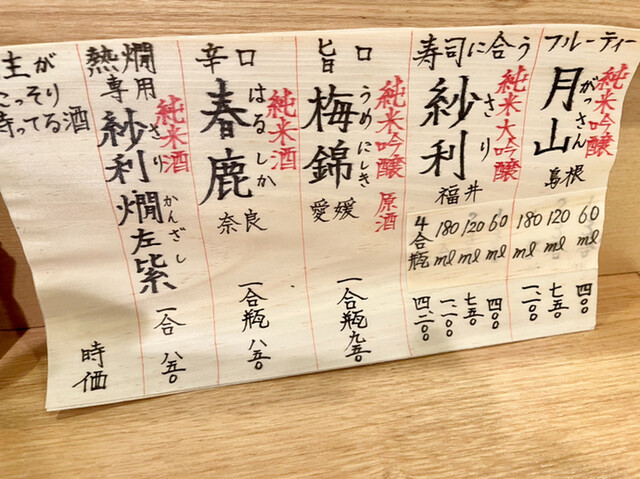 フルーティー
純米吟醸
月山
がっさん
島根
60ml
四〇〇
120ml
七五〇
180ml
一、一〇〇
寿司に合う
純米大吟醸
紗利
さり
福井
60ml
四〇〇
120ml
七五〇
180ml
一、一〇〇
4合瓶
四、二〇〇
旨口
純米吟醸 原酒
梅錦
うめにしき
愛媛
一合瓶 九五〇
辛口
純米酒
春鹿
はるしか
奈良
一合瓶 八五〇
熱燗専用
純米酒
紗利燗左紫
さり かんざし
一合 八五〇
主が
こっそり
待ってる酒
時価